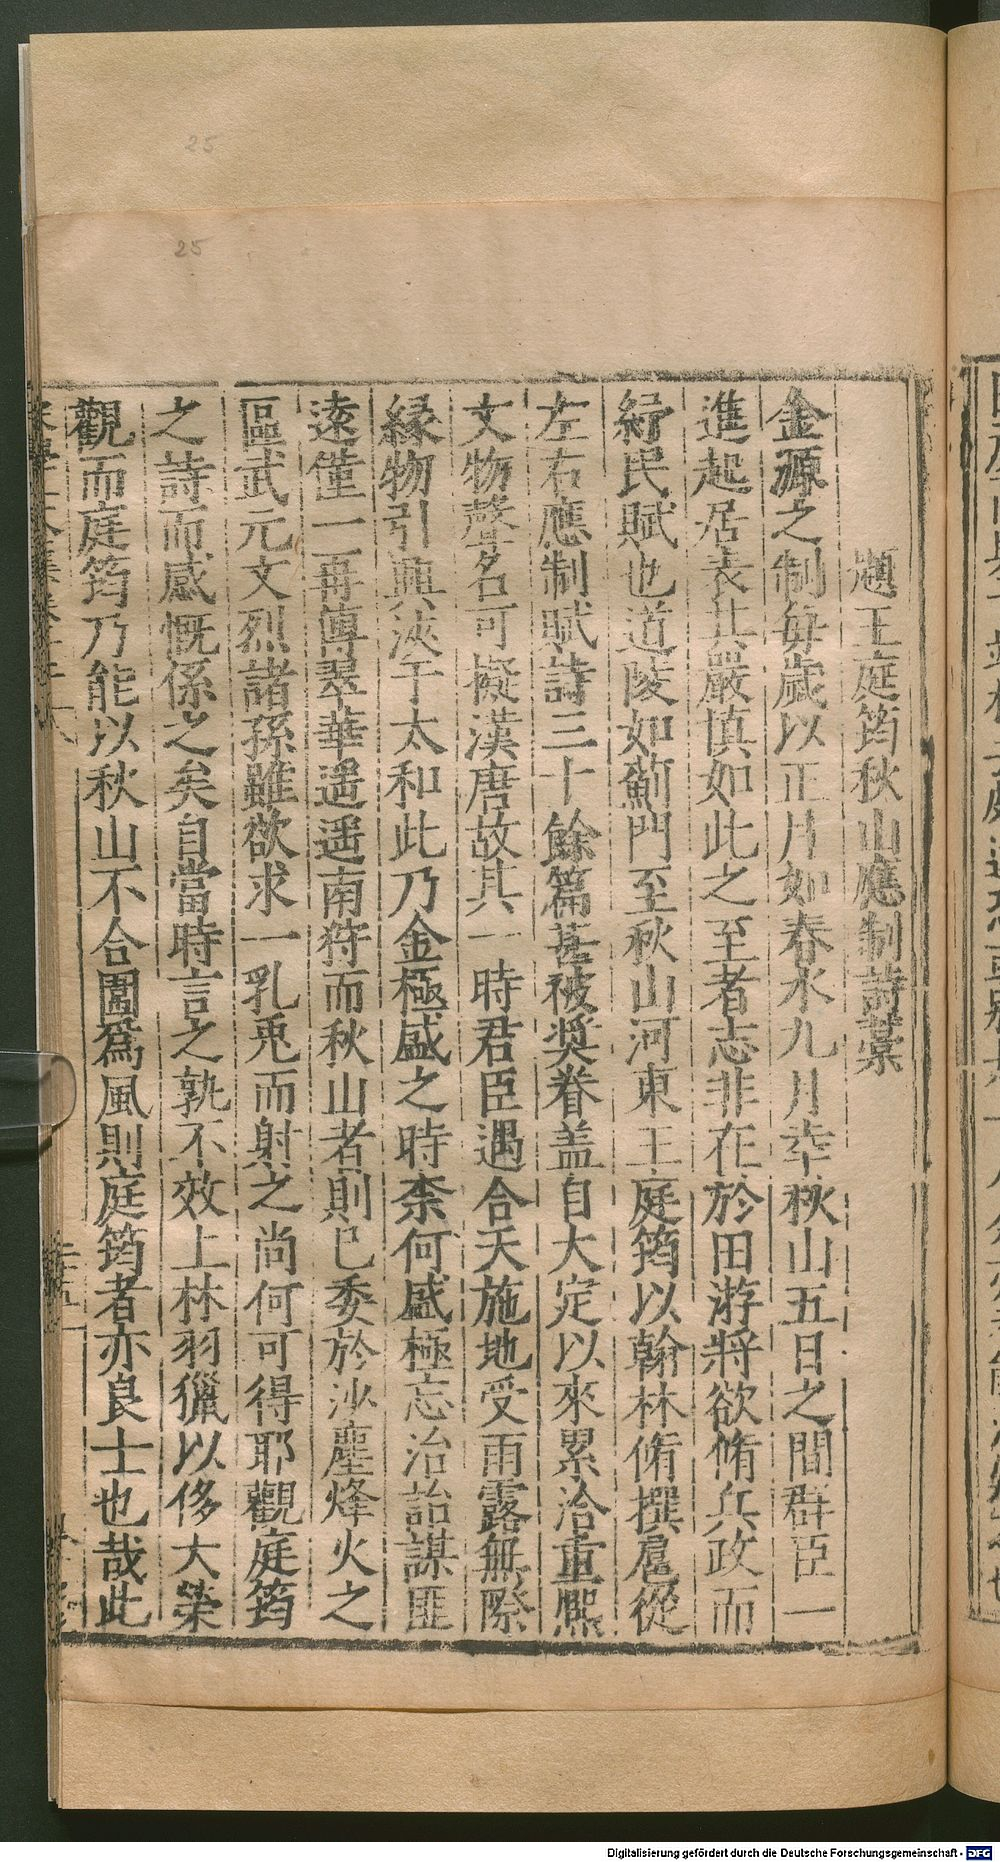 題王庭筠秋山應制詩藁
金源之制每歲以正月如春水九月幸秋山五日之間群臣一
進起居表其嚴慎如此之至者志非在於田游將欲脩兵政而
紓民賦也道陵如薊門至秋山河東王庭筠以翰林脩撰扈從
左右應制賦詩三十餘篇甚被奨眷盖自大定以來累洽重熈
文物聲名可擬漢唐故其一時君臣遇合天施地受雨露無際
縁物引興浹于太和此乃金極盛之時柰何盛極忘治詒謀匪
遠僅一再傳翠華遥遥南狩而秋山者則已委於沙塵烽火之
區武元文烈諸孫雖欲求一乳兎而射之尚何可得耶觀庭筠
之詩而感慨係之矣自當時言之孰不效上林羽獵以侈大榮
觀而庭筠乃能以秋山不合圍爲風則庭筠者亦良士也哉此
25
25
Digitalisierung gefördert durch die Deutsche Forschungsgemeinschaft - DFG